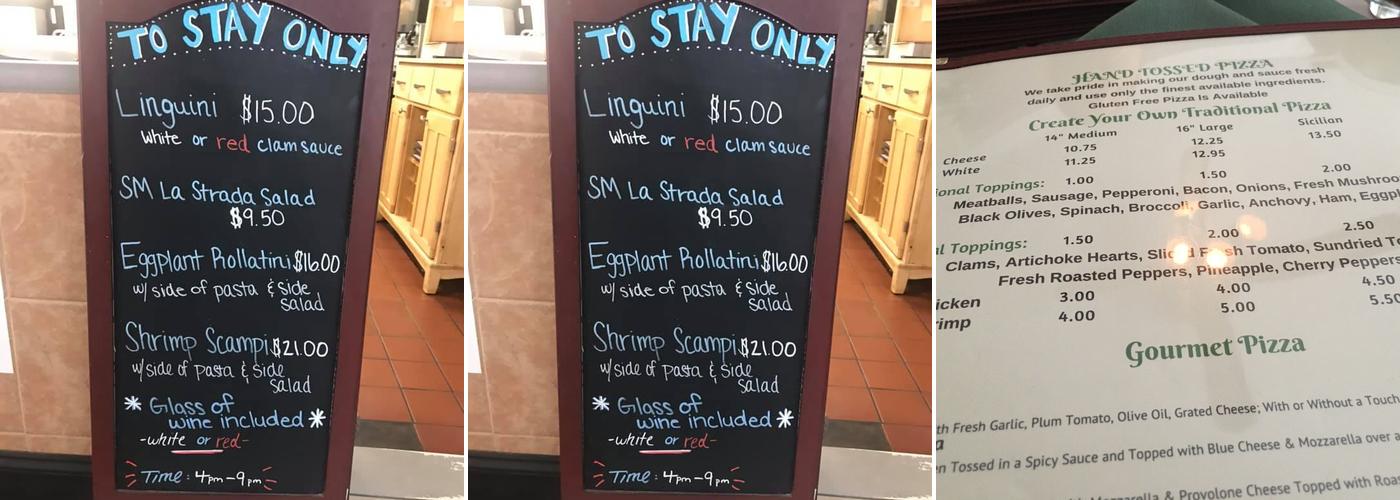 TO STAY ONLY
Linguini $15.00
white or red clam sauce
SM La Strada Salad
$9.50
Eggplant Rollatini $16.00
w/ side of pasta & side
salad
Shrimp Scampi $21.00
w/side of pasta & side
salad
* Glass of
wine included *
-white or red-
Time: 4pm-9pm
TO STAY ONLY
Linguini $15.00
white or red clam sauce
SM La Strada Salad
$9.50
Eggplant Rollatini $16.00
w/ side of pasta & side
salad
Shrimp Scampi $21.00
w/side of pasta & side
salad
* Glass of
wine included *
-white or red-
Time: 4pm-9pm
HAND TOSSED PIZZA
We take pride in making our dough and sauce fresh
daily and use only the finest available ingredients.
Gluten Free Pizza Is Available
Create Your Own Traditional Pizza
14" Medium 16" Large Sicilian
Cheese 10.75 12.25 13.50
White 11.25 12.95
Toppings: 1.00 1.50 2.00
Meatballs, Sausage, Pepperoni, Bacon, Onions, Fresh
Black Olives, Spinach, Broccoli, Garlic, Anchovy, Ham,
Toppings: 1.50 2.00 2.50
Clams, Artichoke Hearts, Sliced Fresh Tomato, Sundried
Fresh Roasted Peppers, Pineapple, Cherry Peppers
3.00 4.00 4.50
4.00 5.00 5.50
Gourmet Pizza
Fresh Garlic, Plum Tomato, Olive Oil, Grated Cheese; With or Without a Touch
Tossed in a Spicy Sauce and Topped with Blue Cheese & Mozzarella over a
Mozzarella & Provolone Cheese Topped with